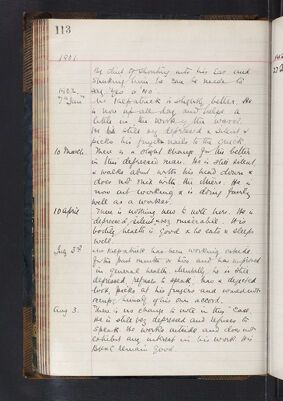 113
1901
By dint of shouting into his ear and
shaking him he can be made to
say Yes or No.
1902
7th Jany Mr Kilpatrick is slightly better. He
is now up all day and helps a
little in the work of the ward.
He is still very depressed & silent &
picks his finger nails to the quick.
10 March There is a slight change for the better
in this depressed man. He is still silent
& walks about with his head down &
does not mix with the others. He is
now out working & is doing fairly
well as a worker.
10 April There is nothing new to note here. He is
depressed, silent, & very miserable. His
bodily health is good & he eats & sleeps
well.
July 3rd Mr Kilpatrick has been working outside
for the past month or two and has improved
in general health. Mentally he is still
depressed, refuses to speak, has a dejected
look, picks at his fingers and would not
occupy himself of his own accord.
Aug 3. There is no change to note in this case.
He is still very depressed and refuses to
speak. He works outside and does not
exhibit any interest in his work. His
health remains good.